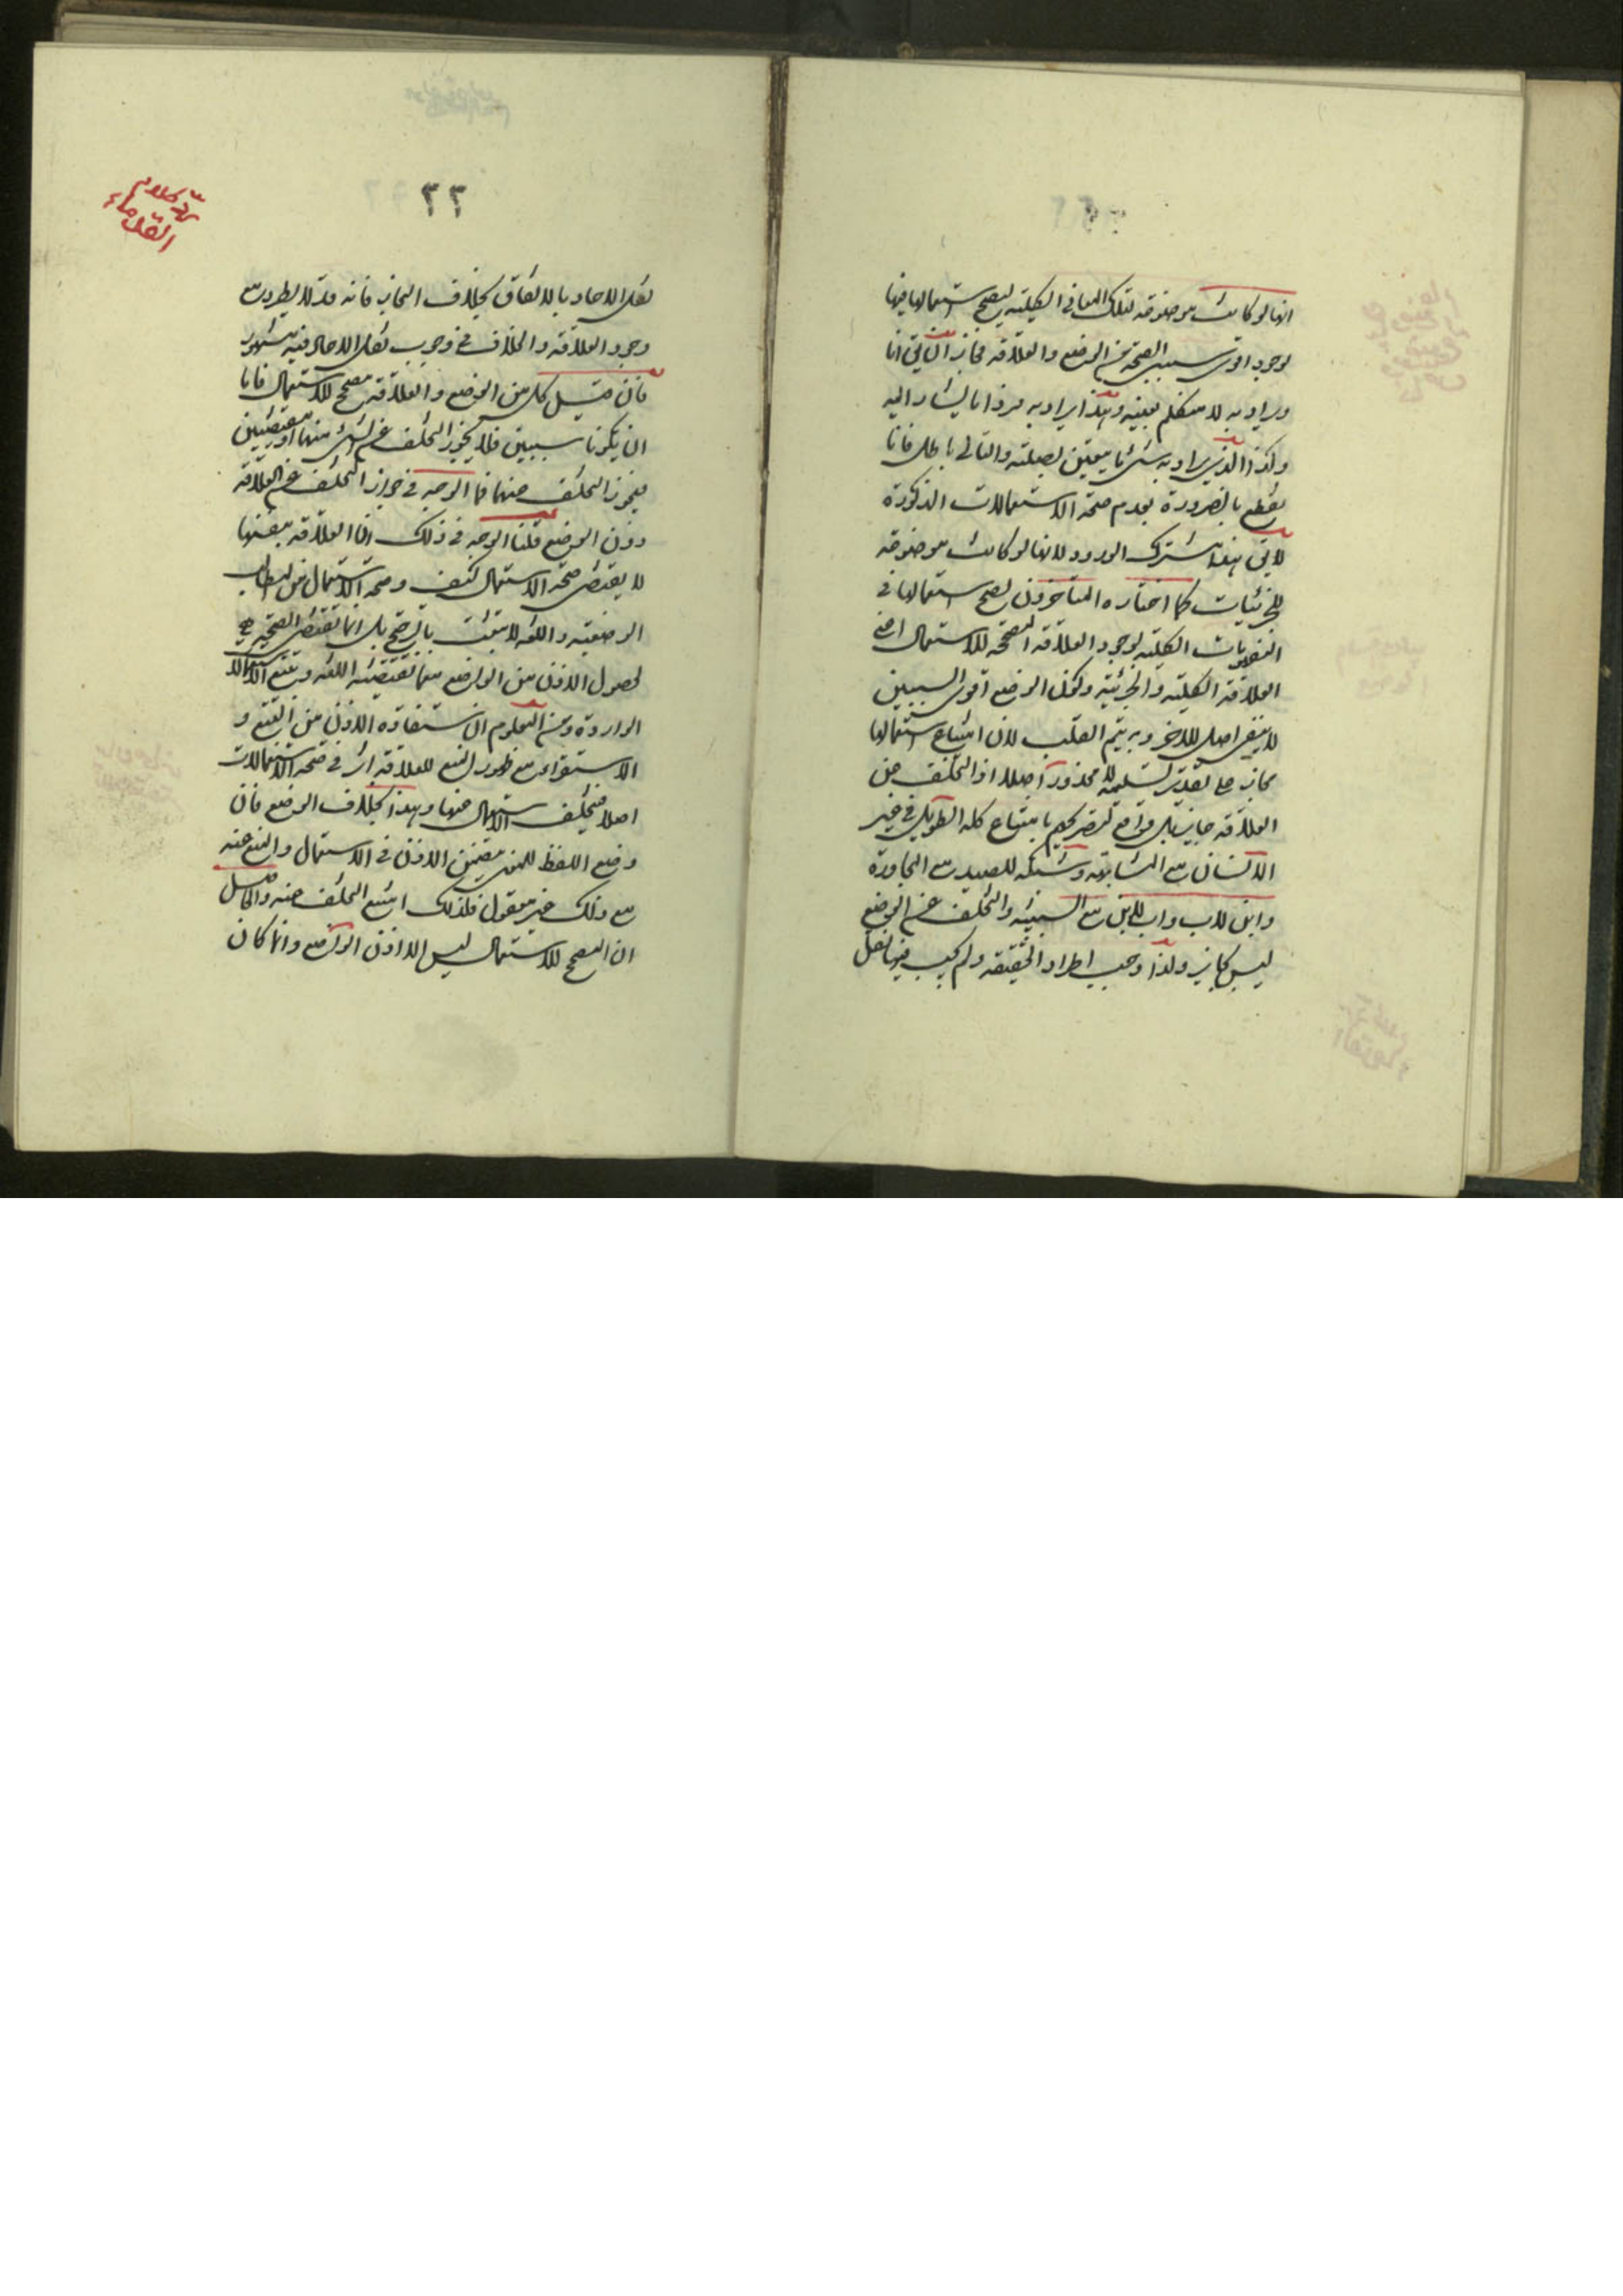 انها لو كانت موضوعة لتلك المعاني الكلية ليصح استعمالها فيها
لوجود اقوى سببي الصحة من الوضع والعلاقة فجاز ان يقال انا
ويراد به لا متكلم بعينه وهذا يراد به فرد ما ليشار اليه
وكذا الذي يراد به شيء ما يتعين لصلته والتالي باطل فانا
نقطع بالضرورة بعدم صحة الاستعمالات المذكورة
لا يق هذا مشترك الورود لانها لو كانت موضوعة
للجزئيات كما اختاره المتاخرون لصح استعمالها في
الكلية لوجود العلاقة المصححة للاستعمال اعني
العلاقة الكلية والجزئية وكون الوضع اقوى السببين
لا ينفع اصلا للاخر وبه يتم القلب لان امتناع استعمالها
مجازا على تقدير تسليمه لا محذور اصلا اذ التخلف عن
العلاقة جايز بل واقع لتصريحهم بامتناع نخلة لطويل في غير
الانسان مع المشابهة وشبكة للصيد مع المجاورة
وابن للاب واب للابن مع السببية والتخلف عن الوضع
ليس بجايز ولذا وجب اطراد الحقيقة ولم يجب فيها نقل
٢٢
ردّ كلام
القدماء
نقل الاحاد بالاتفاق بخلاف المجاز فانه قد لا يطرد مع
وجود العلاقة والخلاف في وجوب نقل الاحاد فيه مشهور
فان قيل كل من الوضع والعلاقة مصحح للاستعمال فاما
ان يكونا سببين فلا يجوز التخلف عن شيء منهما او مقتضيين
فيجوز التخلف عنهما فما الوجه في جواز التخلف عن العلاقة
دون الوضع قلنا الوجه في ذلك ان العلاقة بنفسها
لا يقتضي صحة الاستعمال كيف وصحة الاستعمال من المطالب
الوضعية واللغة لا تثبت بالترجيح بل انما تقتضي الصحة
لحصول الاذن من الواضع فيما تقتضيه اللغة وتتبع الاستعمالات
الواردة ومن المعلوم ان استفادة الاذن من التتبع و
الاستقراء مع ظهور المنع للعلاقة اثر في صحة الاستعمالات
اصلا فيتخلف الاستعمال عنها وهذا بخلاف الوضع فان
وضع اللفظ للمعنى يتضمن الاذن في الاستعمال والمنع عنه
مع ذلك غير معقول فلذلك امتنع التخلف عنه والحاصل
ان المصحح للاستعمال ليس الا اذن الواضع وانما كان